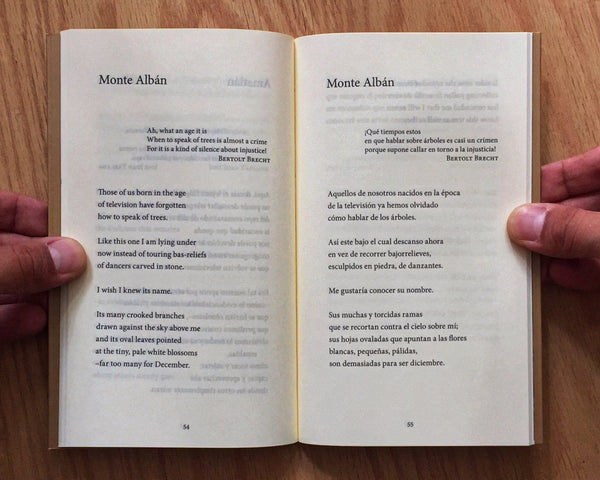 Monte Albán
Ah, what an age it is
When to speak of trees is almost a crime
For it is a kind of silence about injustice!
Bertolt Brecht
Those of us born in the age
of television have forgotten
how to speak of trees.
Like this one I am lying under
now instead of touring bas-reliefs
of dancers carved in stone.
I wish I knew its name.
Its many crooked branches
drawn against the sky above me
and its oval leaves pointed
at the tiny, pale white blossoms
–far too many for December.
54
Monte Albán
¡Qué tiempos estos
en que hablar sobre árboles es casi un crimen
porque supone callar en torno a la injusticia!
Bertolt Brecht
Aquellos de nosotros nacidos en la época
de la televisión ya hemos olvidado
cómo hablar de los árboles.
Así este bajo el cual descanso ahora
en vez de recorrer bajorrelieves,
esculpidos en piedra, de danzantes.
Me gustaría conocer su nombre.
Sus muchas y torcidas ramas
que se recortan contra el cielo sobre mí;
sus hojas ovaladas que apuntan a las flores
blancas, pequeñas, pálidas,
son demasiadas para ser diciembre.
55